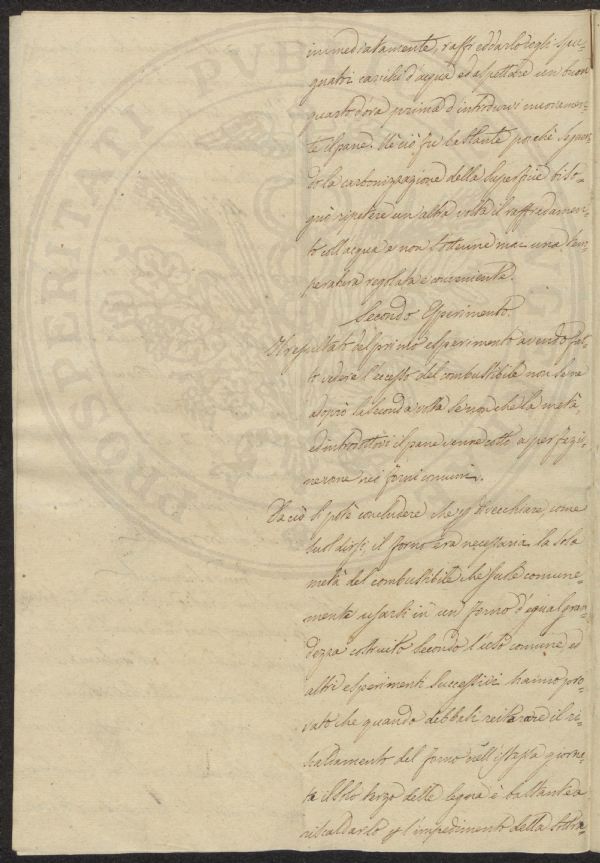 immediatamente, raffreddarlo cogli spu-
gnatri carichi d'acqua ed aspettare un buon
quarto d'ora prima d'introdurvi nuovamen-
te il pane. Nè ciò fu bastante perchè seguen-
do la carbonizzazione della superficie biso-
gnò ripetere un altra volta il raffreddamen-
to coll'acqua e non s'ottenne mai una tem-
peratura regolata e conveniente.
Secondo Esperimento.
Il resultato del primo esperimento avendo fat-
to vedere l'eccesso del combustibile non se ne
adoprò la seconda volta se non che la metà,
ed introdottovi il pane venne cotto a perfezi-
one nei forni comuni.
Da ciò si potè concludere che p
come
suol dirsi, il forno era necessaria la sola
metà del combustibile che suole comune-
mente usarsi in un forno d'egual gran-
dezza costruito secondo l'uso comune, ed
altri esperimenti successivi hanno pro-
vato che quando debbasi reiterare il ri-
scaldamento del forno nell'istessa giorna-
ta il solo terzo delle legna è bastante a
riscaldarlo p l'impedimento della sottra-
PROSPERITATI PUBL